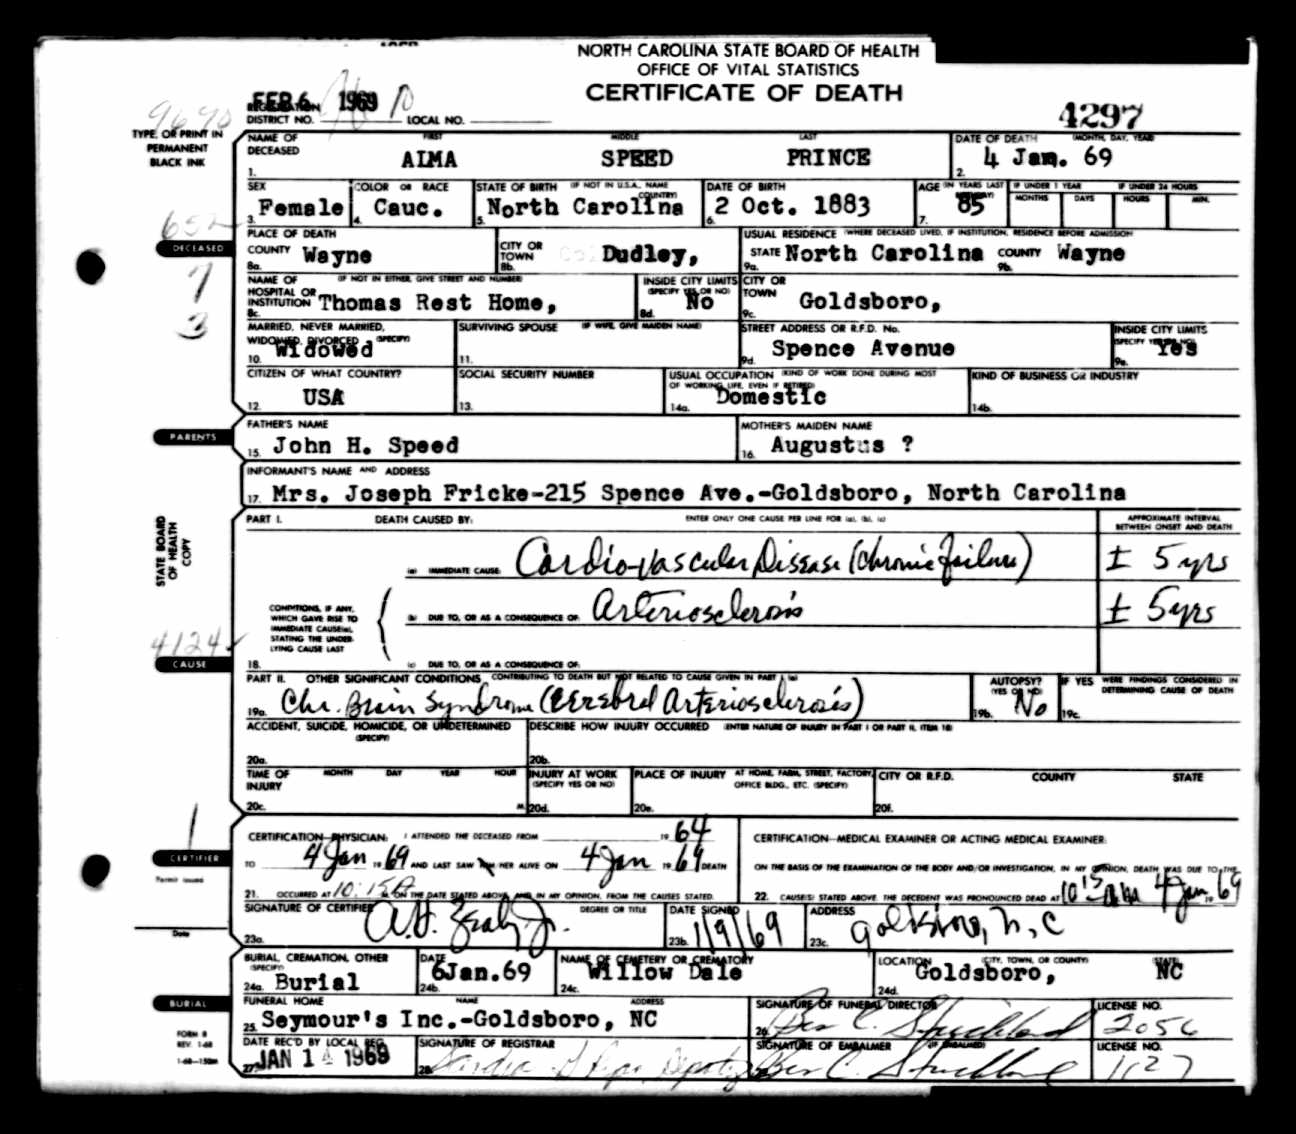 NORTH CAROLINA STATE BOARD OF HEALTH
OFFICE OF VITAL STATISTICS
CERTIFICATE OF DEATH
FEB 6 1969
4297
9690
REGISTRATION DISTRICT NO. LOCAL NO.
TYPE, OR PRINT IN PERMANENT BLACK INK
NAME OF DECEASED FIRST MIDDLE LAST DATE OF DEATH (MONTH, DAY, YEAR)
1. ALMA SPEED PRINCE 2. 4 Jan. 69
SEX COLOR OR RACE STATE OF BIRTH (IF NOT IN U.S.A., NAME COUNTRY) DATE OF BIRTH AGE (IN YEARS LAST BIRTHDAY) IF UNDER 1 YEAR IF UNDER 24 HOURS
MONTHS DAYS HOURS MIN.
3. Female 4. Cauc. 5. North Carolina 6. 2 Oct. 1883 7. 85
652
DECEASED
PLACE OF DEATH USUAL RESIDENCE (WHERE DECEASED LIVED, IF INSTITUTION, RESIDENCE BEFORE ADMISSION)
COUNTY Wayne CITY OR TOWN Dudley, STATE North Carolina COUNTY Wayne
8a. 8b. 9a. 9b.
7
3
NAME OF HOSPITAL OR INSTITUTION (IF NOT IN EITHER, GIVE STREET AND NUMBER) INSIDE CITY LIMITS (SPECIFY YES OR NO) CITY OR TOWN
8c. Thomas Rest Home, 8d. No 9c. Goldsboro,
MARRIED, NEVER MARRIED, WIDOWED, DIVORCED (SPECIFY) SURVIVING SPOUSE (IF WIFE, GIVE MAIDEN NAME) STREET ADDRESS OR R.F.D. No. INSIDE CITY LIMITS (SPECIFY YES OR NO)
10. Widowed 11. 9d. Spence Avenue 9e. Yes
CITIZEN OF WHAT COUNTRY? SOCIAL SECURITY NUMBER USUAL OCCUPATION (KIND OF WORK DONE DURING MOST OF WORKING LIFE, EVEN IF RETIRED) KIND OF BUSINESS OR INDUSTRY
12. USA 13. 14a. Domestic 14b.
PARENTS
FATHER'S NAME MOTHER'S MAIDEN NAME
15. John H. Speed 16. Augustus ?
INFORMANT'S NAME AND ADDRESS
17. Mrs. Joseph Fricke-215 Spence Ave.-Goldsboro, North Carolina
STATE BOARD OF HEALTH COPY
PART I. DEATH CAUSED BY: ENTER ONLY ONE CAUSE PER LINE FOR (a), (b), (c) APPROXIMATE INTERVAL BETWEEN ONSET AND DEATH
(a) IMMEDIATE CAUSE: Cardio-vascular Disease (chronic failure) ± 5 yrs
CONDITIONS, IF ANY, WHICH GAVE RISE TO IMMEDIATE CAUSE(a), STATING THE UNDERLYING CAUSE LAST
(b) DUE TO, OR AS A CONSEQUENCE OF: Arteriosclerosis ± 5 yrs
4124
CAUSE
18. (c) DUE TO, OR AS A CONSEQUENCE OF:
PART II. OTHER SIGNIFICANT CONDITIONS CONTRIBUTING TO DEATH BUT NOT RELATED TO CAUSE GIVEN IN PART I (a) AUTOPSY? (YES OR NO) IF YES WERE FINDINGS CONSIDERED IN DETERMINING CAUSE OF DEATH
19a. Chr. Brain Syndrome (Cerebral Arteriosclerosis) 19b. No 19c.
ACCIDENT, SUICIDE, HOMICIDE, OR UNDETERMINED (SPECIFY) DESCRIBE HOW INJURY OCCURRED (ENTER NATURE OF INJURY IN PART I OR PART II, ITEM 18)
20a. 20b.
TIME OF INJURY MONTH DAY YEAR HOUR INJURY AT WORK (SPECIFY YES OR NO) PLACE OF INJURY AT HOME, FARM, STREET, FACTORY, OFFICE BLDG., ETC. (SPECIFY) CITY OR R.F.D. COUNTY STATE
20c. M. 20d. 20e. 20f.
1
CERTIFIER
Permit issued
Date
CERTIFICATION—PHYSICIAN: I ATTENDED THE DECEASED FROM 19 64
TO 4 Jan 19 69 AND LAST SAW HIM/HER ALIVE ON 4 Jan 19 69 DEATH
21. OCCURRED AT 10:15A M. ON THE DATE STATED ABOVE, AND, IN MY OPINION, FROM THE CAUSES STATED.
CERTIFICATION—MEDICAL EXAMINER OR ACTING MEDICAL EXAMINER:
ON THE BASIS OF THE EXAMINATION OF THE BODY AND/OR INVESTIGATION, IN MY OPINION, DEATH WAS DUE TO THE
22. CAUSE(S) STATED ABOVE. THE DECEDENT WAS PRONOUNCED DEAD AT 10 15 4 Jan 19 69
SIGNATURE OF CERTIFIER DEGREE OR TITLE DATE SIGNED ADDRESS
23a. 23b. 1/9/69 23c. Goldsboro, N.C
BURIAL, CREMATION, OTHER (SPECIFY) DATE NAME OF CEMETERY OR CREMATORY LOCATION (CITY, TOWN, OR COUNTY) STATE
24a. Burial 24b. 6Jan.69 24c. Willow Dale 24d. Goldsboro, NC
BURIAL
FUNERAL HOME NAME ADDRESS SIGNATURE OF FUNERAL DIRECTOR LICENSE NO.
25. Seymour's Inc.-Goldsboro, NC 26. Ben C. Strickland 2056
FORM 8
REV. 1-68
1-68—150M
DATE REC'D BY LOCAL REG. SIGNATURE OF REGISTRAR SIGNATURE OF EMBALMER (IF EMBALMED) LICENSE NO.
27. JAN 14 1969 28. Deputy Ben C. Strickland 1127